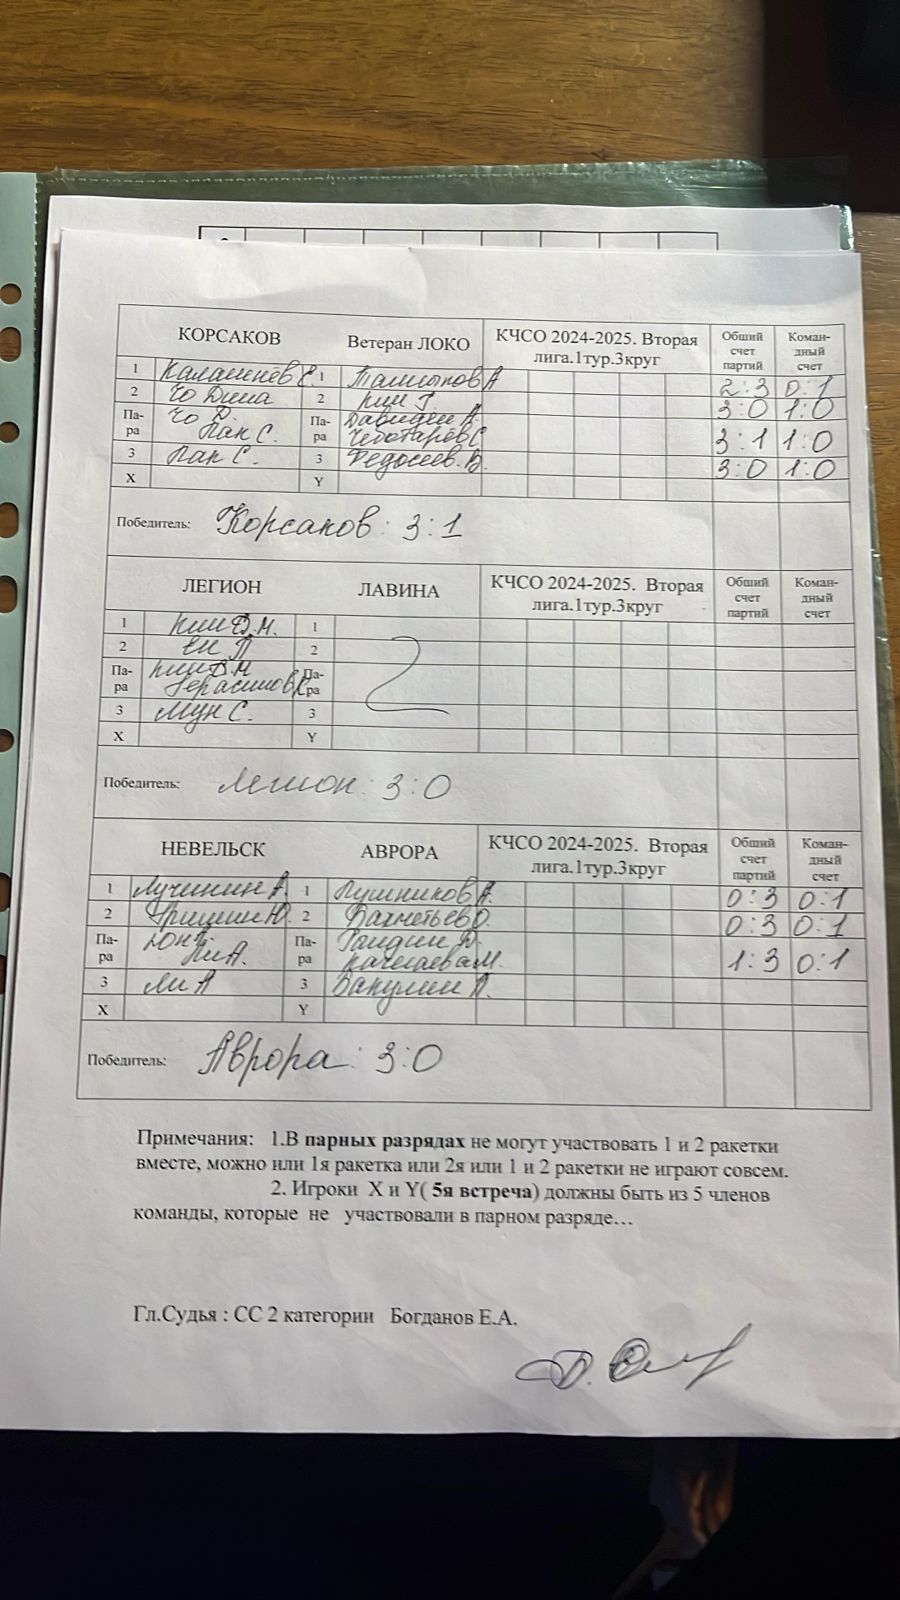 КОРСАКОВ Ветеран ЛОКО КЧСО 2024-2025. Вторая лига.1тур.3круг Общий счет партий Коман-дный счет
1 1 2:3 0:1
2 Чо Дима 2 Ким Г. 3:0 1:0
Па-ра Чо Д. Пак С. Па-ра Давидян Чеботарёв С 3:1 1:0
3 Пак С. 3 Федосеев.В. 3:0 1:0
X Y
Победитель: Корсаков: 3:1
ЛЕГИОН ЛАВИНА КЧСО 2024-2025. Вторая лига.1тур.3круг Общий счет партий Коман-дный счет
1 Ким В.М. 1
2 Ен П 2
Па-ра Ким В.М Герасимов Па-ра
3 Мун С. 3
X Y
Победитель: Легион: 3:0
НЕВЕЛЬСК АВРОРА КЧСО 2024-2025. Вторая лига.1тур.3круг Общий счет партий Коман-дный счет
1 Лучинин А. 1 Пушников А. 0:3 0:1
2 Гришин Ю. 2 Бахметьев О. 0:3 0:1
Па-ра Ли А. Па-ра 1:3 0:1
3 Ли А 3 Вакулин
X Y
Победитель: Аврора: 3:0
Примечания: 1.В парных разрядах не могут участвовать 1 и 2 ракетки
вместе, можно или 1я ракетка или 2я или 1 и 2 ракетки не играют совсем.
2. Игроки X и Y( 5я встреча) должны быть из 5 членов
команды, которые не участвовали в парном разряде…
Гл.Судья : СС 2 категории Богданов Е.А.